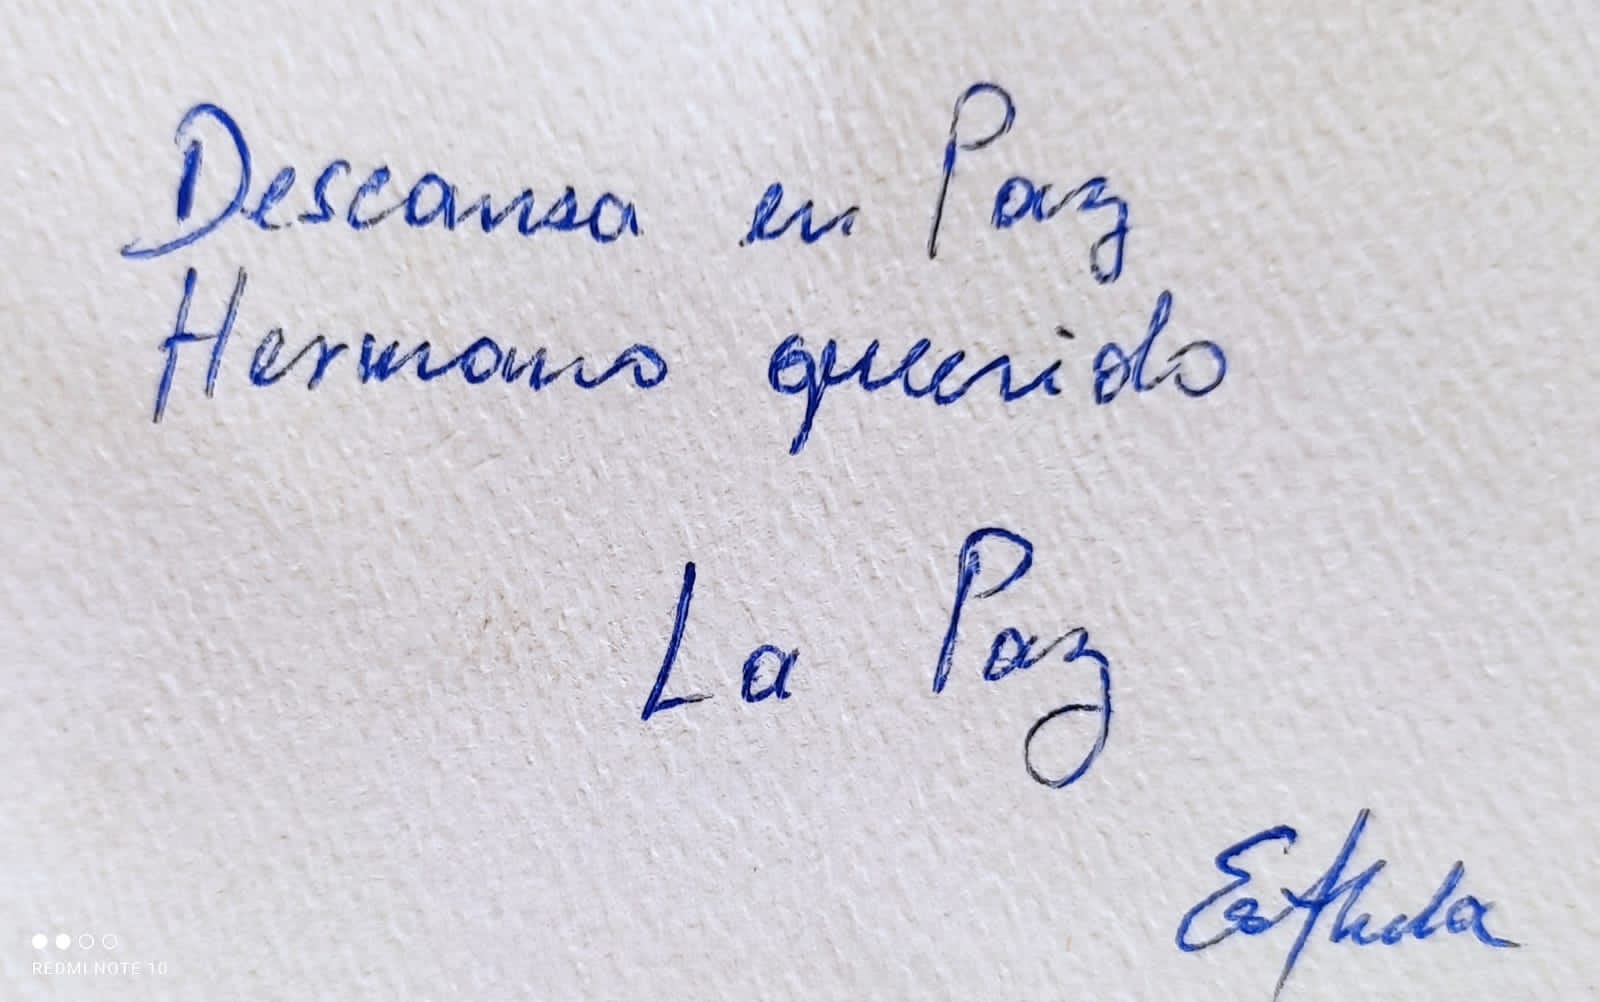 Descansa en Paz
Hermano querido
La Paz
REDMI NOTE 10